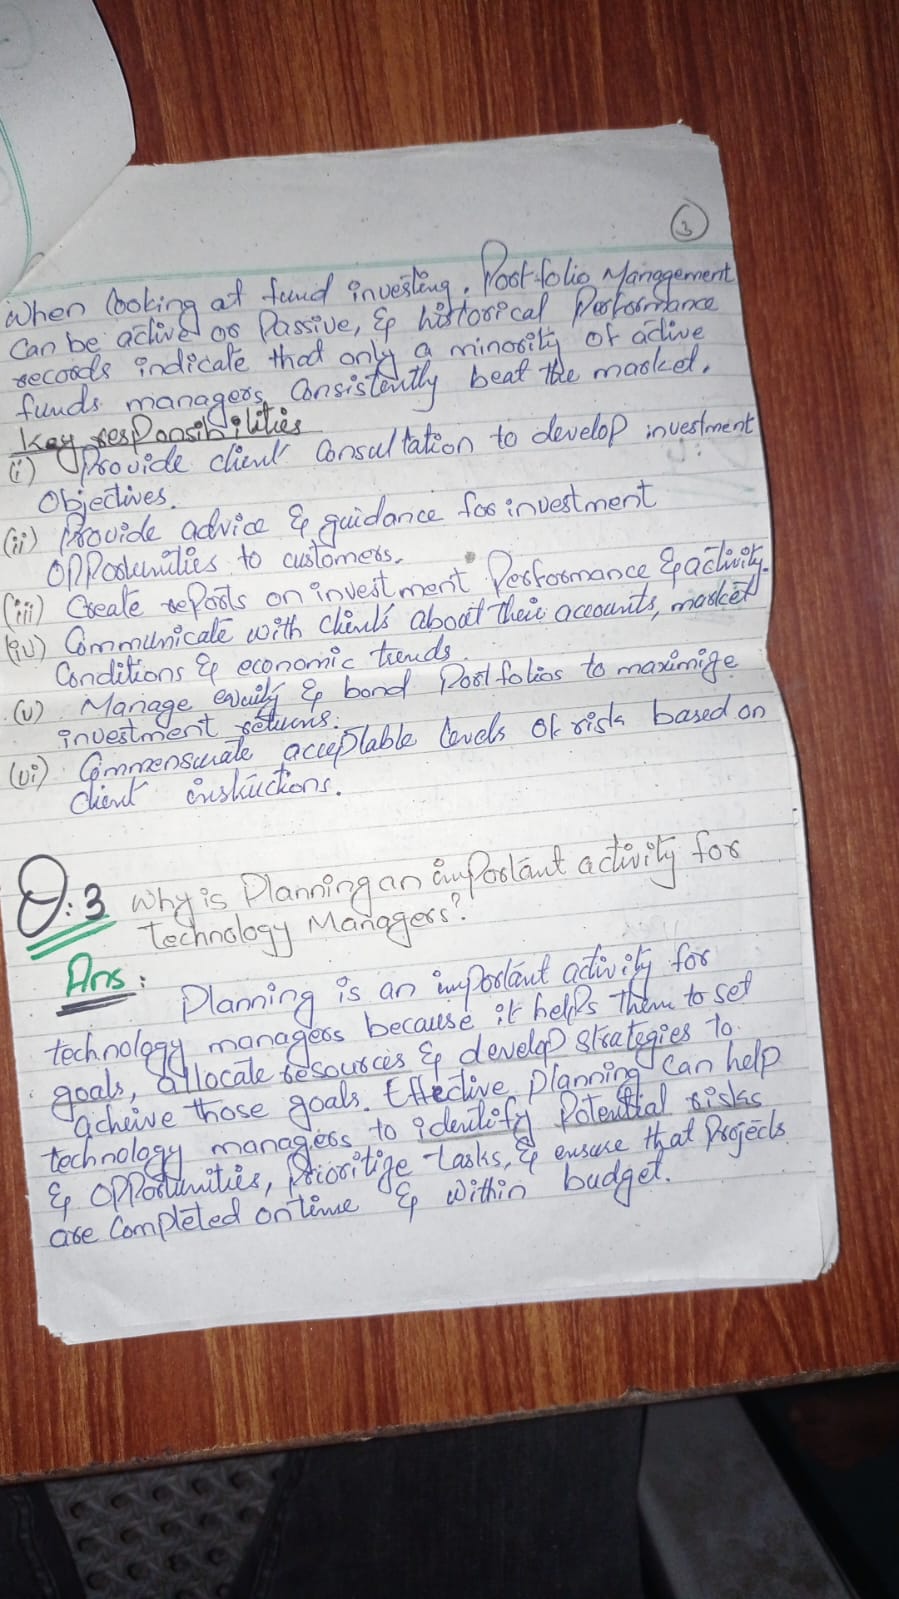 3
When looking at fund investing. Portfolio Management
Can be active or Passive, & historical Performance
records indicate that only a minority of active
funds managers Consistently beat the market.
Key responsibilities
(i) Provide client Consultation to develop investment
Objectives.
(ii) Provide advice & guidance for investment
Opportunities to customers.
(iii) Create reports on investment Performance & activity.
(iv) Communicate with clients about their accounts, market
Conditions & economic trends.
(v) Manage equity & bond Portfolios to maximize
investment returns.
(vi) Commensurate acceptable levels of risk based on
Client instructions.
Q:3 Why is Planning an important activity for
technology Managers?
Ans: Planning is an important activity for
technology managers because it helps them to set
goals, allocate resources & develop strategies to
acheive those goals. Effective planning can help
technology managers to identify Potential risks
& Opportunities, Prioritize tasks, & ensure that Projects
are Completed on time & within budget.